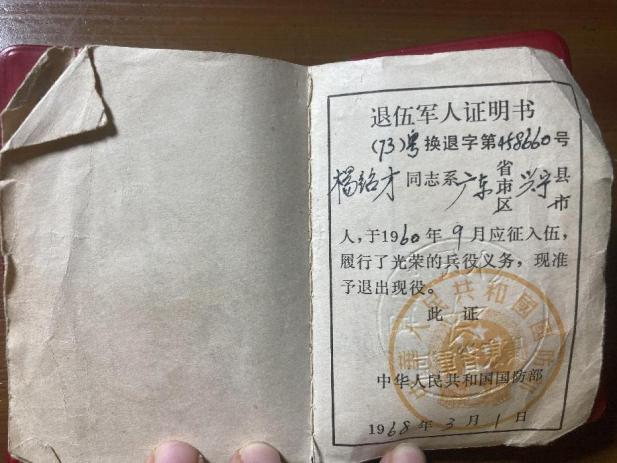 退伍军人证明书
(73)号换退字第458660号
楊銘才同志系广东省市区兴宁县市
人,于1960年9月应征入伍,
履行了光荣的兵役义务,现准
予退出现役。
此证
中华人民共和国国防部
1968年3月1日